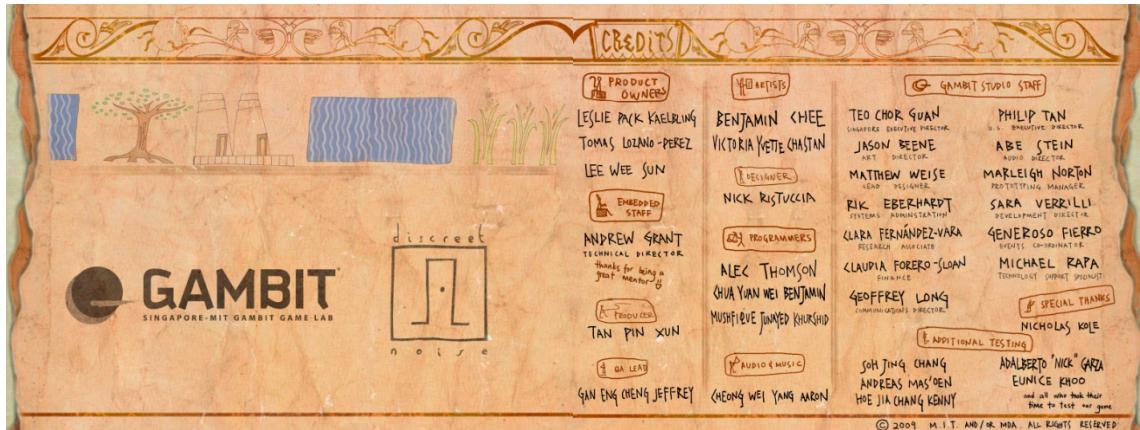 CREDITS
PRODUCT OWNERS
LESLIE PACK KAELBLING
TOMAS LOZANO-PEREZ
LEE WEE SUN
EMBEDDED STAFF
ANDREW GRANT
TECHNICAL DIRECTOR
thanks for being a
great mentor
PRODUCER
TAN PIN XUN
QA LEAD
GAN ENG CHENG JEFFREY
ARTISTS
BENJAMIN CHEE
VICTORIA YVETTE CHASTAN
DESIGNER
NICK RISTUCCIA
PROGRAMMERS
ALEC THOMSON
CHUA YUAN WEI BENJAMIN
MUSHFIQUE JUNAYED KHURSHID
AUDIO & MUSIC
CHEONG WEI YANG AARON
GAMBIT STUDIO STAFF
TEO CHOR GUAN
SINGAPORE EXECUTIVE DIRECTOR
JASON BEENE
ART DIRECTOR
MATTHEW WEISE
LEAD DESIGNER
RIK EBERHARDT
SYSTEMS ADMINISTRATION
CLARA FERNÁNDEZ-VARA
RESEARCH ASSOCIATE
CLAUDIA FORERO-SLOAN
FINANCE
GEOFFREY LONG
COMMUNICATIONS DIRECTOR
PHILIP TAN
U.S. EXECUTIVE DIRECTOR
ABE STEIN
AUDIO DIRECTOR
MARLEIGH NORTON
PROTOTYPING MANAGER
SARA VERRILLI
DEVELOPMENT DIRECTOR
GENEROSO FIERRO
EVENTS CO-ORDINATOR
MICHAEL RAPA
TECHNOLOGY SUPPORT SPECIALIST
SPECIAL THANKS
NICHOLAS KOLE
ADDITIONAL TESTING
SOH JING CHANG
ANDREAS MAS'OEN
HOE JIA CHANG KENNY
ADALBERTO "NICK" GARZA
EUNICE KHOO
and all who took their
time to test our game
discreet
noise
GAMBIT
SINGAPORE-MIT GAMBIT GAME LAB
© 2009 M.I.T. AND/OR MDA. ALL RIGHTS RESERVED